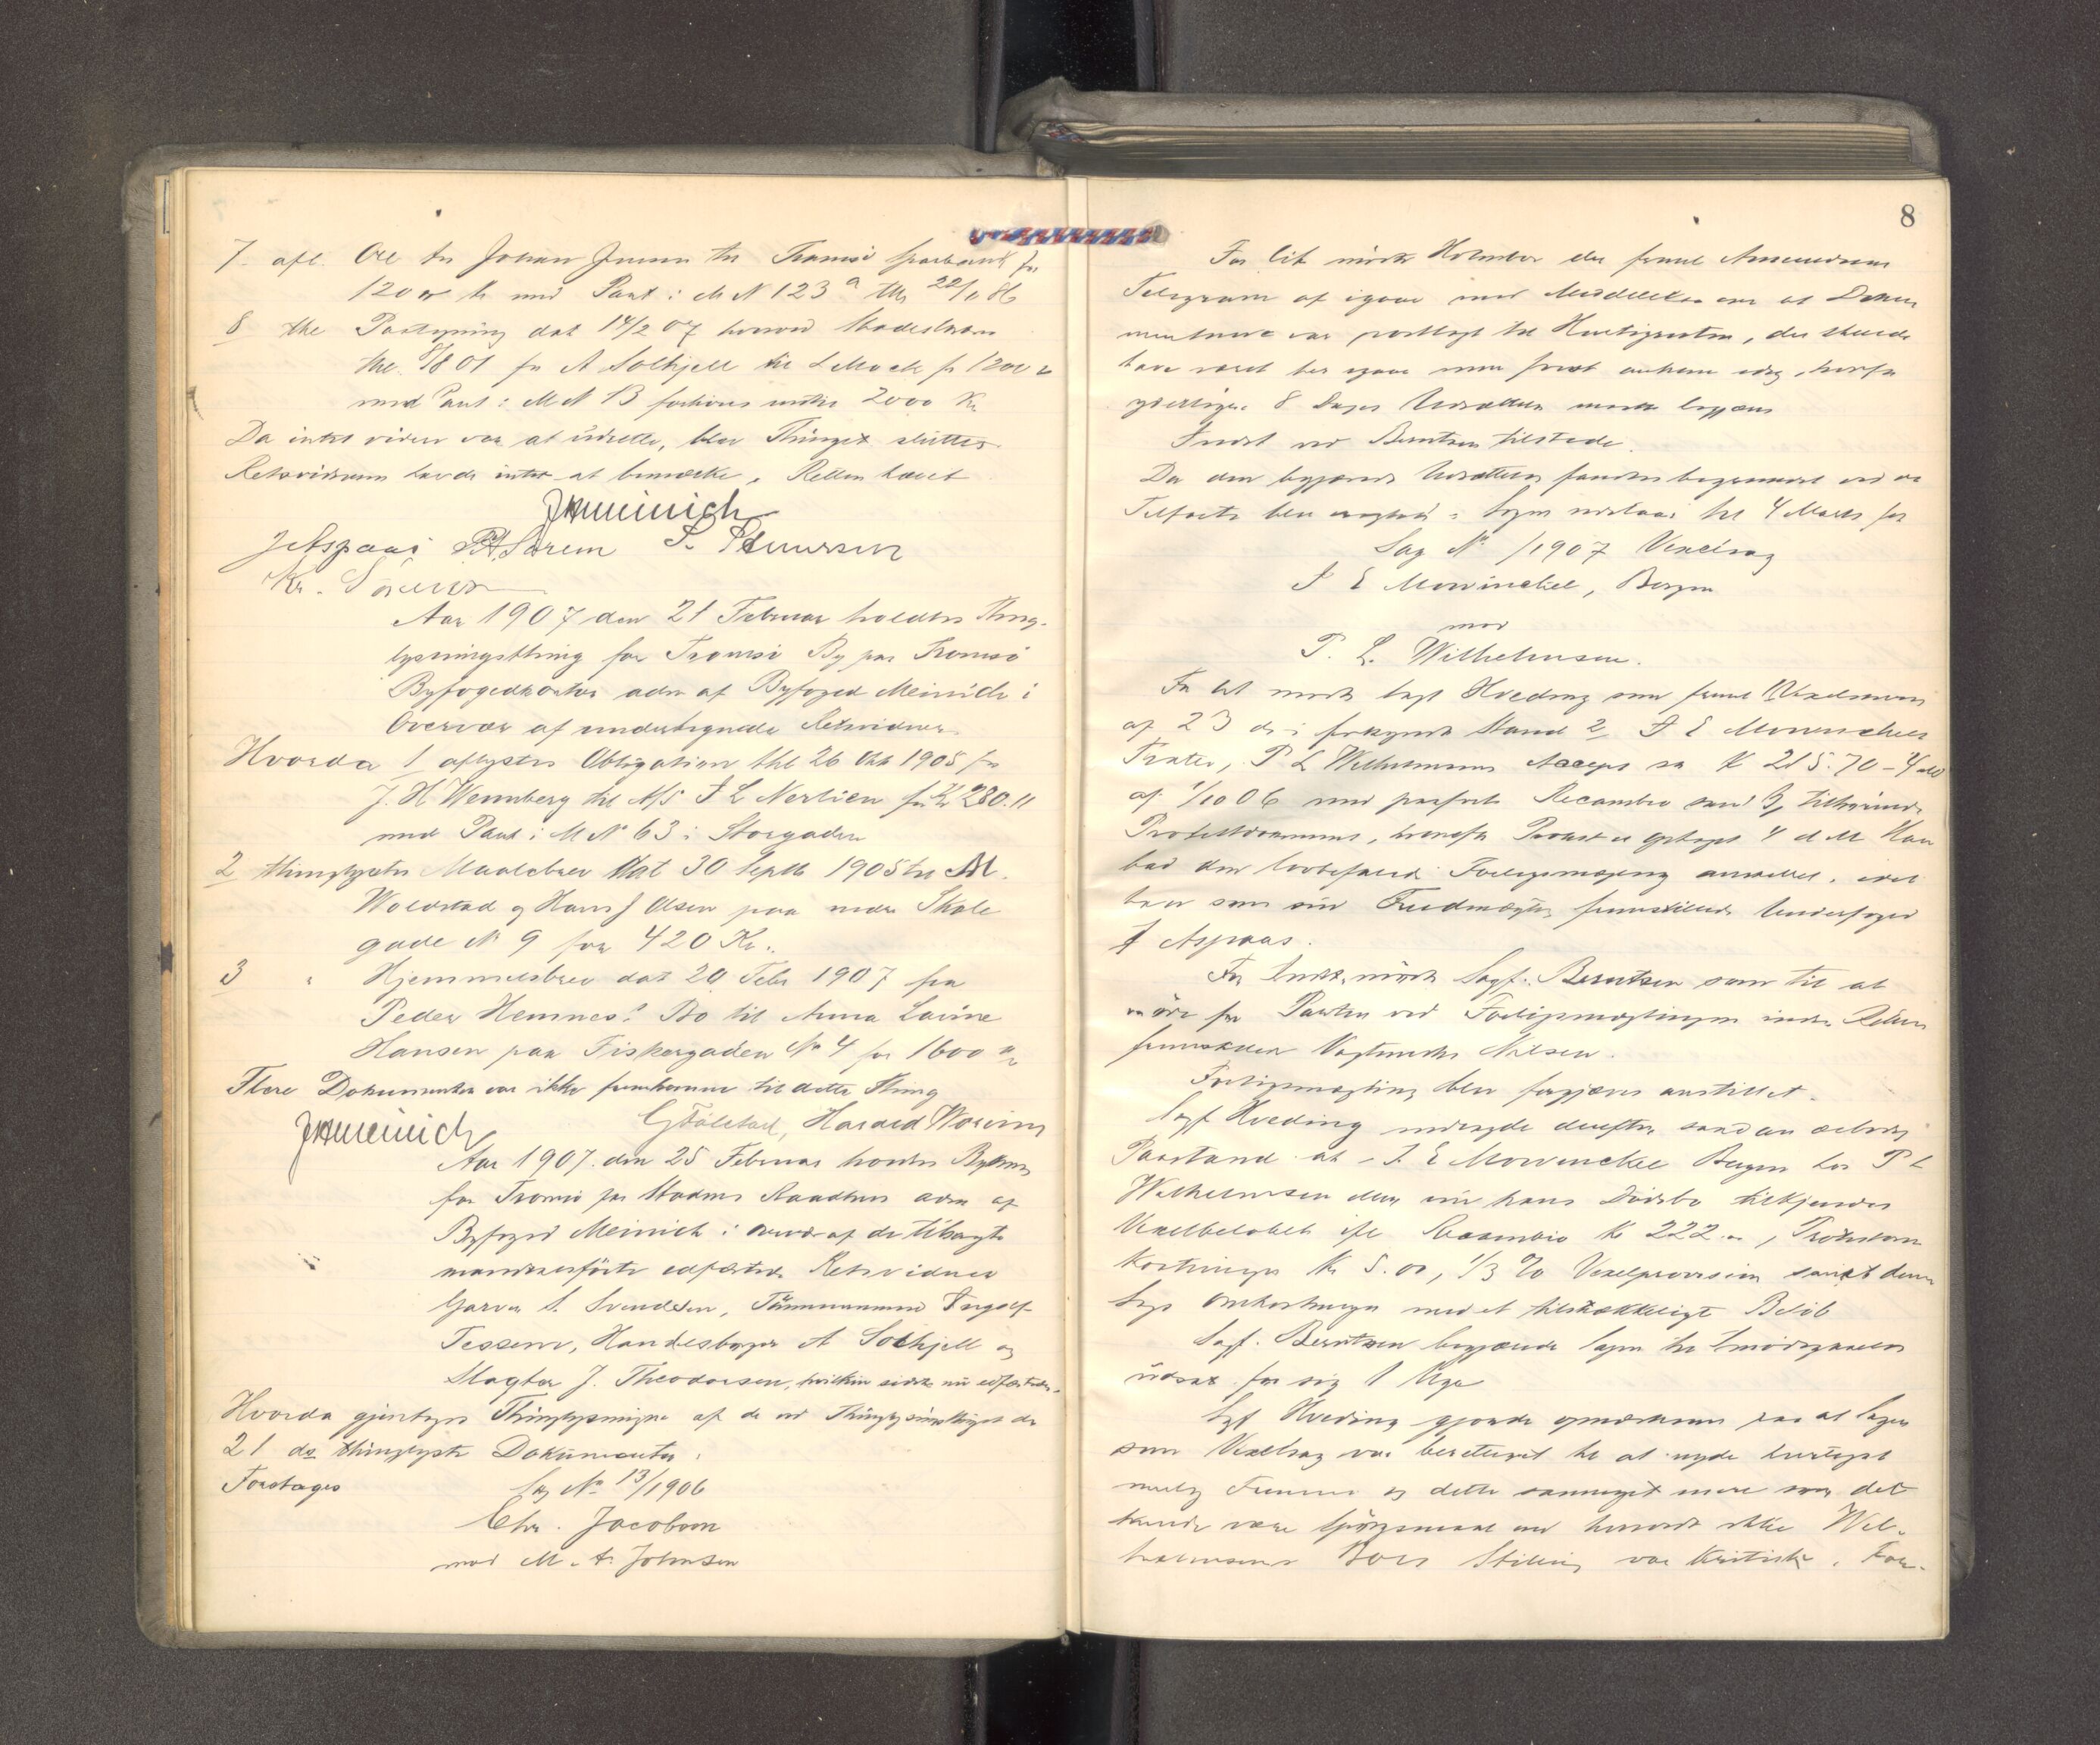 7. afl. Obl fra Johan Jensen til Tromsö Sparebank for
1200 Kr med Pant i M N 123 a thl 22/11 86
8 thl Paategning dat 14/2 07 hvorved Skadesløsbr
thl 8/8 01 fra A Solhjell til L Mack for 1200 Kr
med Pant i M N 13 forhöies inntil 2000 Kr
Da intet videre var at udrette, blev Thinget sluttet
Retsvidnerne havde intet at bemærke. Retten hævet
JHMeinich
J Aspaas P. A. Sørem P. Pedersen
Kr. Sörensen
Aar 1907 den 21 Februar holdtes Thing-
lysningsthing for Tromsö By paa Tromsö
Byfogedkontor adm af Byfoged Meinich i
Overvær af undertegnede Retsvidner.
Hvorda 1 aflystes Obligation thl 26 Okt 1905 fra
J. H Wennberg til A/S J L Nerlien for Kr 280.11
med Pant i M N 63 i Storgaden
2 thinglystes Maalebrev dat 30 Septb 1905 til M.
Woldstad og Hans J Olsen paa nedre Skole
gade N 9 for 420 Kr.
3 " Hjemmelsbrev dat 20 Febr 1907 fra
Peder Hemnes's Bo til Anna Lovine
Hansen paa Fiskergaden No 4 for 1600 Kr
Flere Dokumenter var ikke fremkomne til dette Thing
JHMeinich G Tölstad, Harald
Aar 1907 den 25 Februar holdtes Byting
for Tromsö paa Stadens Raadhus adm af
Byfoged Meinich i overvær af de tilsagte
edfæstede Retsvidner
Garver S. Svendsen, Tömmermand Ingolf
Tessem, Handelsborger A Solhjell og
Slagter J. Theodorsen, hvilken sidste nu edfæstedes.
Hvorda gjentoges Thinglysningen af de ved Thinglysningsthinget den
21 ds thinglyste Dokumenter.
Foretoges Sag No 13/1906
Chr. Jacobsen
mod M. A. Johnsen
8
For Cit mödte Holmboe der fremlagde
Telegram af igaar med Meddelelse om at Doku
menterne var postlagt til Hurtigruten, der skulde
have været her igaar men først ankom idag, hvorfor
yderligere 8 Dages Udsættelse maatte begjæres
Indst ved Berntsen tilstede.
Da den begjærede Udsættelse fandtes begrundet ved
blev Sagen udsat til 4 Marts for
Sag No /1907 Vexelsag
J E Mowinckel, Bergen
mod
P. L. Wilhelmsen.
For Cit mödte Sagf Hveding som fremlagde
af 23 ds i forkyndt Stand 2 J E Mowinckels
Tratte, P L Wilhelmsens Accept paa K 215.70 - 4 Md
af 1/10 06 med paaført Recambio samt 3, tilhørende
Protestdokument, hvorefter Protest er optaget 4 d M Han
bad den lovbefalede Forligsmægling anstillet, idet
han som sin Fuldmægtig fremstillede Underfoged
J Aspaas.
For Indst. mödte Sagf. Berntsen som til at
møde for Parten ved Forligsmæglingen inden Retten
fremstillede Vagtmester Nilsen.
Forligsmægling blev forgjæves anstillet.
Sagf Hveding nedlagde derefter saadan
Paastand at J. E Mowinckel Bergen hos P L
Wilhelmsen eller nu hans Dödsbo tilkjendes
Vexelbelöbet ifl Recambio K 222. , Protestom
kostninger Kr 5.00, 1/3 % Vexelprovision samt denne
Sags Omkostninger med et tilstrækkeligt Belöb
Sagf. Berntsen begjærede Sagen til Imödegaaelse
udsat for sig 1 Uge
Sagf Hveding gjorde opmærksom paa at Sagen
som Vexelsag var berettiget til at nyde hurtigst
mulig Fremme og dette saameget mere som det
kunde være Spörgsmaal om hvorvidt ikke Wil-
helmsens Boes Stilling var kritisk. For-